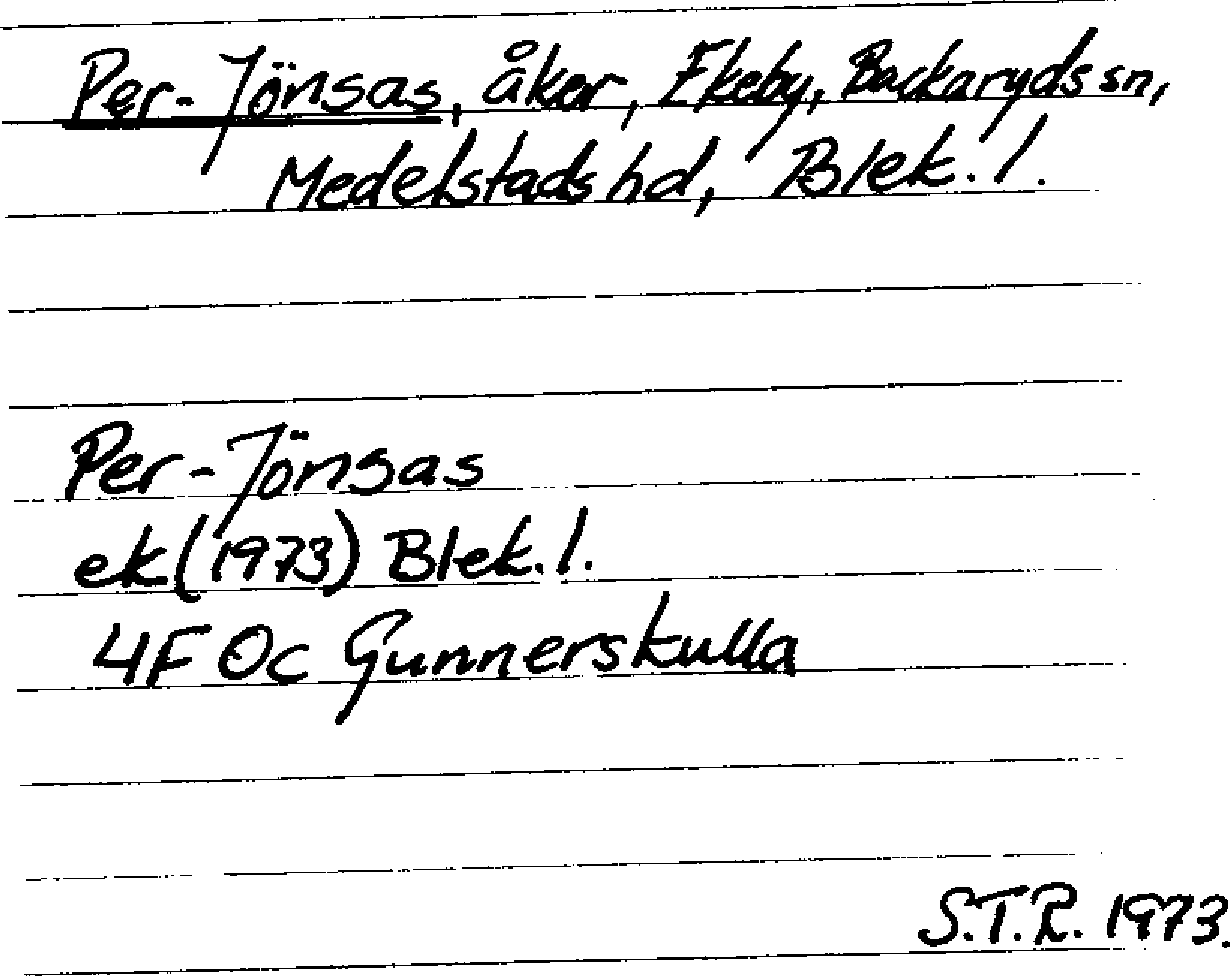 Per-Jönsas, åker, Ekeby, Backaryds sn,
Medelstads hd, Blek. l.
Per-Jönsas
ek (1973) Blek. l.
4F Oc Gunnerskulla
S.T.R. 1973.